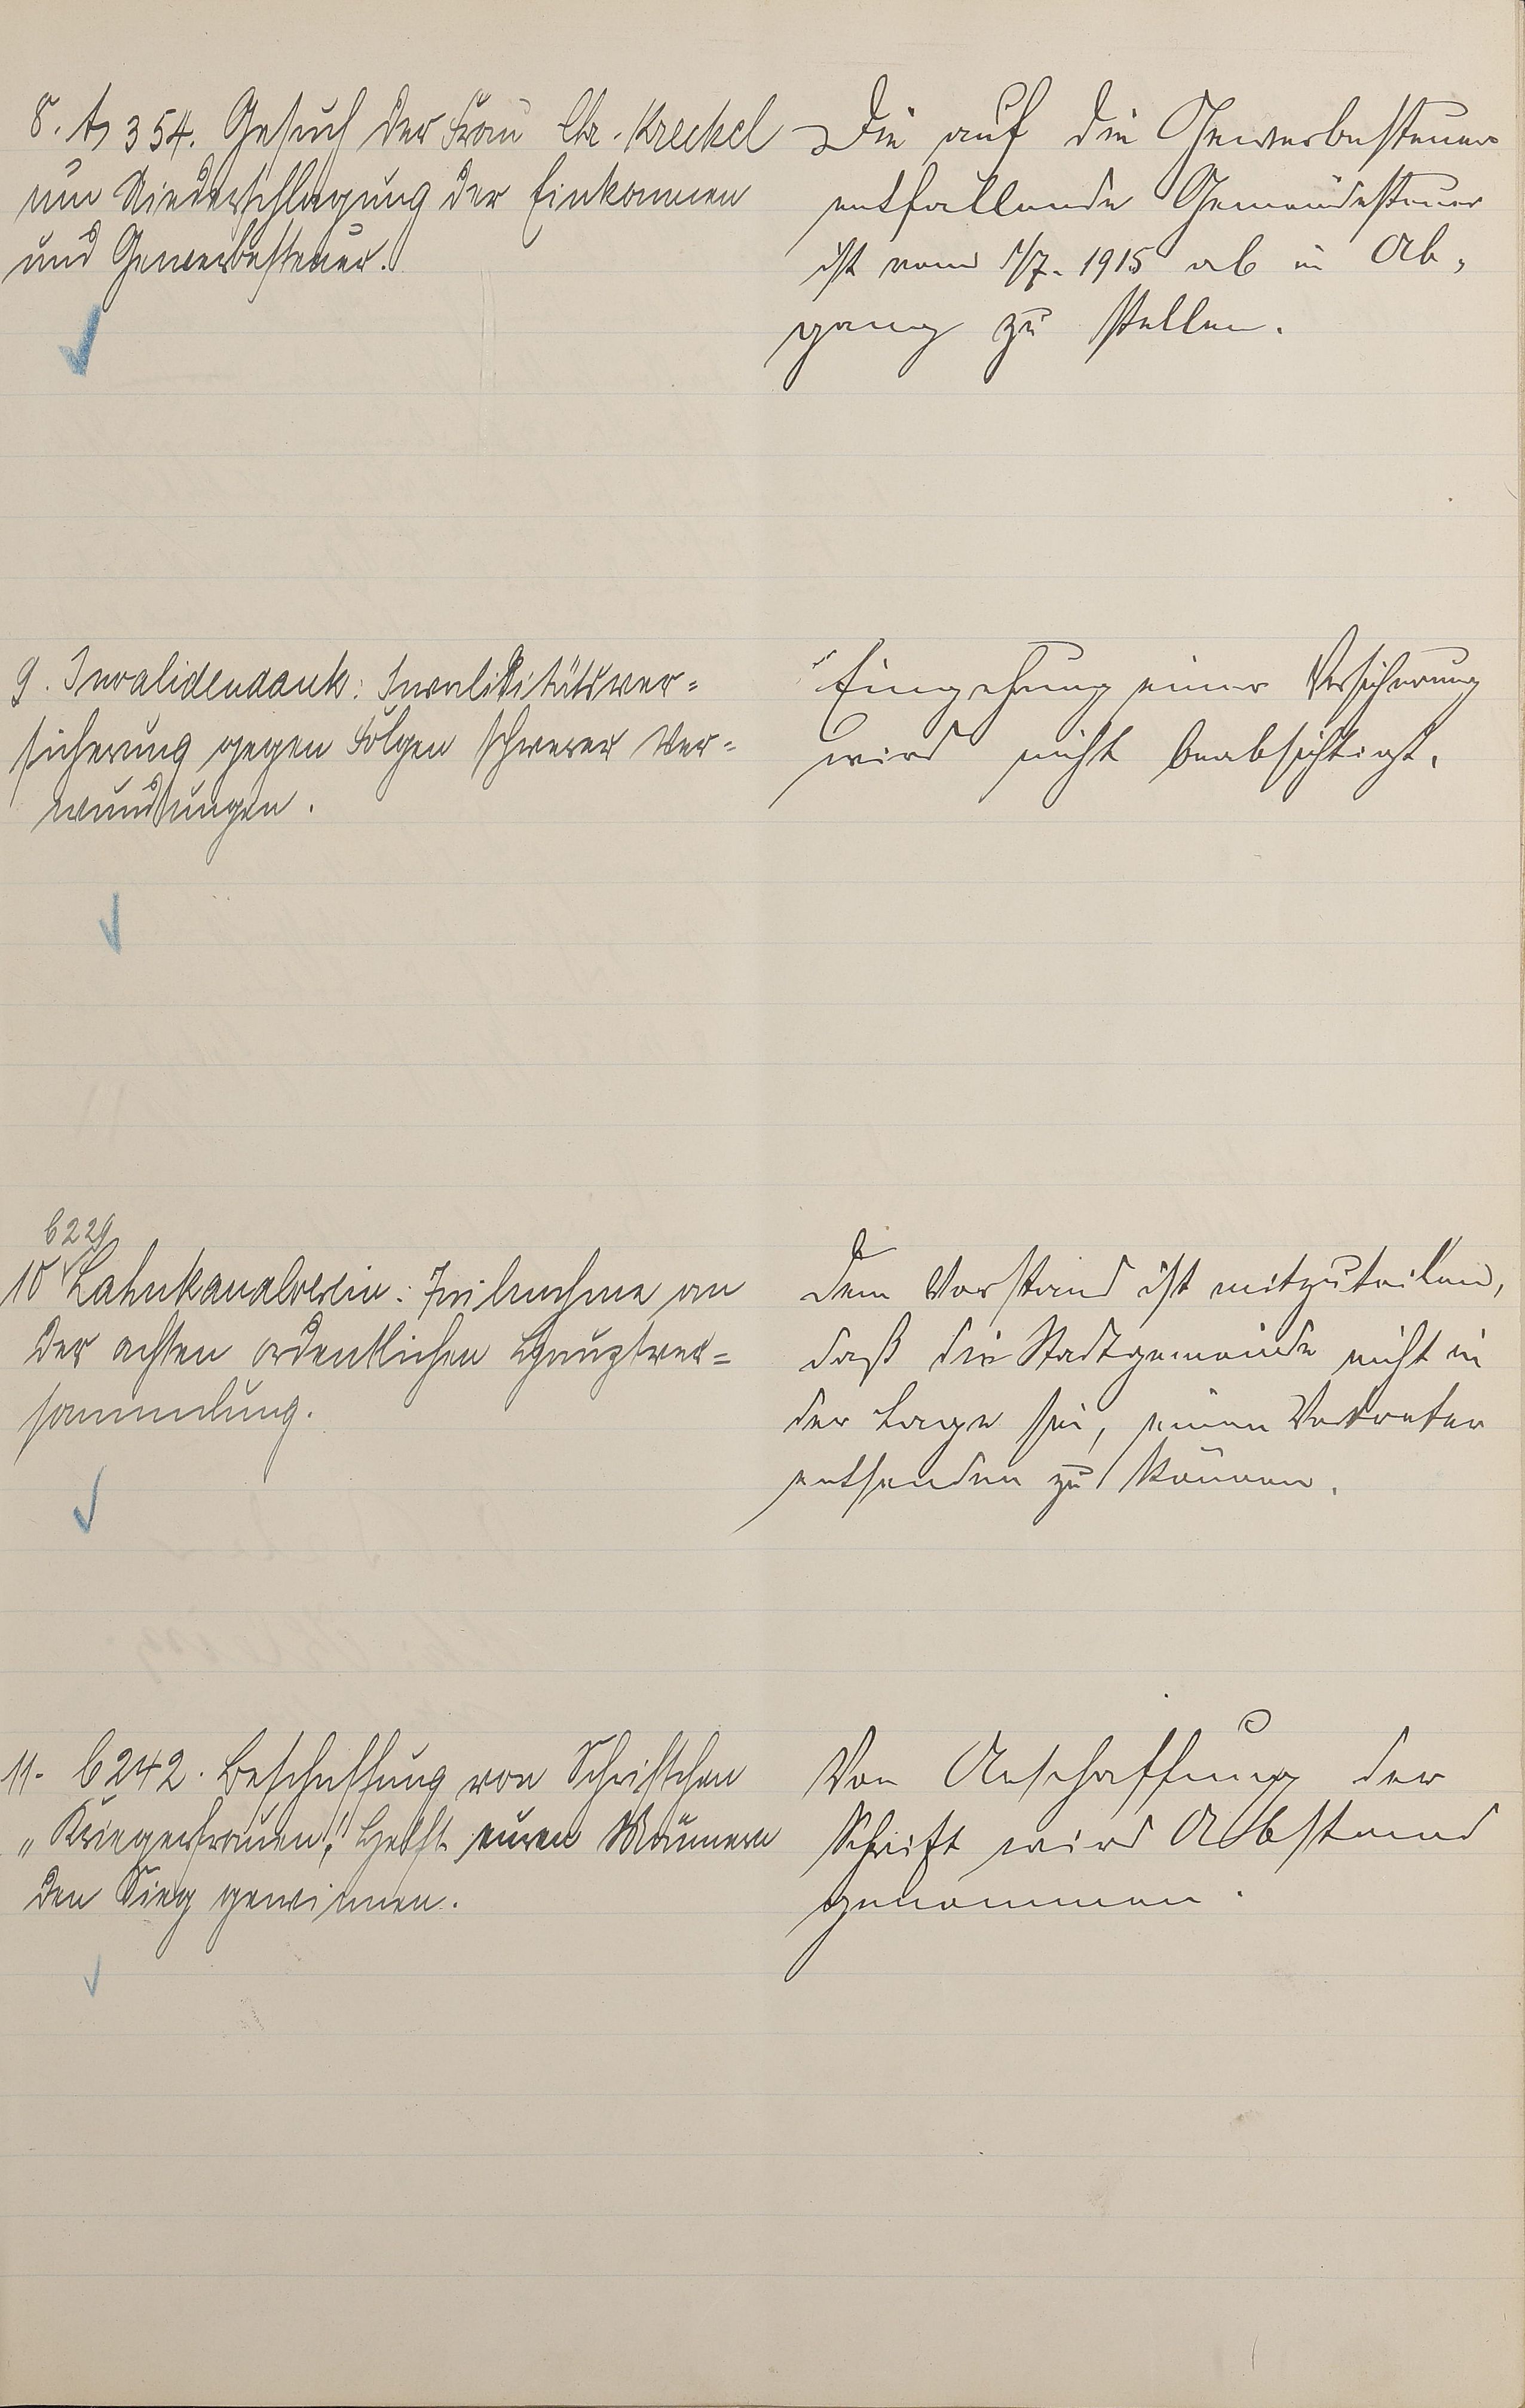 8. A 354. Gesuch der Frau Chr. Kreckel
um Niederschlagung der Einkommen
und Gewerbesteuer.
Die auf die Gewerbesteuer
entfallende Gemeindesteuer
ist vom 1/7. 1915 ab in Ab-
gang zu stellen.
9. Invalidendank: Invaliditätsver=
sicherung gegen Folgen schwerer Ver=
wundungen.
Eingehung einer Versicherung
wird nicht beabsichtigt.
6229
10 Lahnkanalverein: Teilnahme an
der achten ordentlichen Hauptver=
sammlung.
Dem Vorstand ist mitzuteilen,
daß die Stadtgemeinde nicht in
der Lage sei, einen Vertreter
entsenden zu können.
11. 6242. Beschaffung von Schriftchen
„Kriegerfrauen!" Helft euren Männern
den Sieg gewinnen.
Von Anschaffung der
Schrift wird Abstand
genommen.